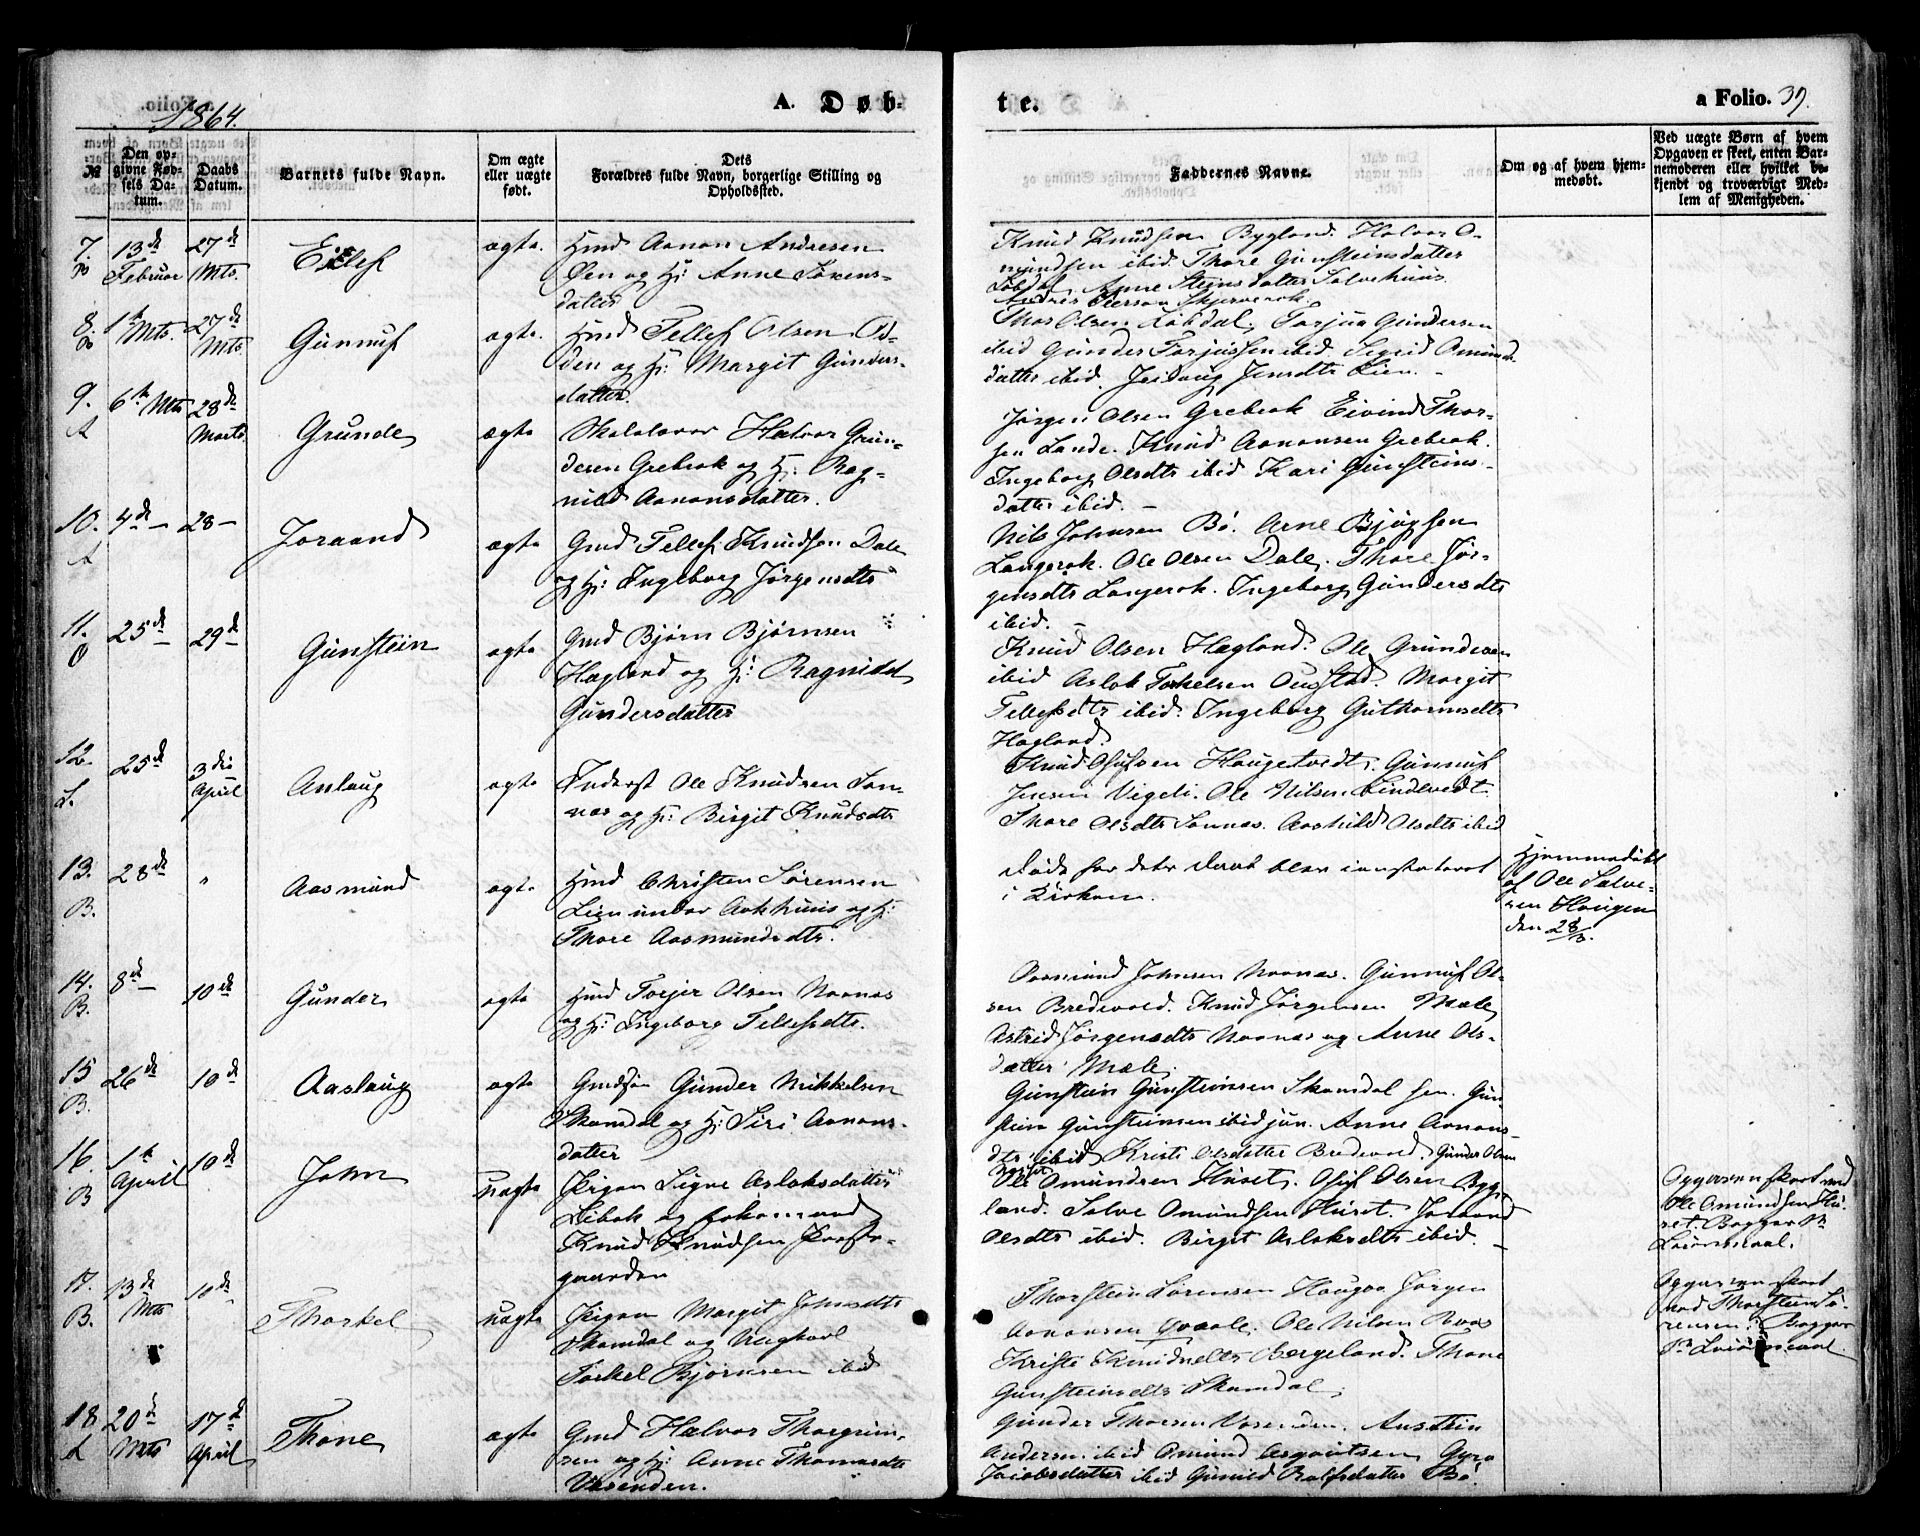 1864.
A. Døb-
te.
a Folio. 39.
№
Den opgivne Fødsels Datum.
Daabs Datum.
Barnets fulde Navn.
Om ægte eller uægte født.
Dets
Forældres fulde Navn, borgerlige Stilling og Opholdssted.
Faddernes Navne.
Om og af hvem hjemmedøbt.
Ved uægte Børn af hvem Opgaven er skeet, enten Barnemoderen eller hvilket bekjendt og troværdigt Medlem af Menigheden.
7. 13de Februar 27de Mts. Eilef ægte.
Hmd Aanon Andresen
Øen og H: Anne Sørens-
datter
Knud Knudsen Bygland. Halvor O-
mundsen ibid. Thore Gunsteinsdatter
Løbdal, Anne Steinsdatter Salvehuus.
8. 1ste Mts. 27de Mts Gunnuf ægte.
Hmd Tellef Olsen
og H: Margit Gunders-
datter.
Thor Olsen Løbdal, Torjus Gundersen
ibid Gunder Torjussen ibid Sigrid Omunds-
datter ibid. Jensdtr Lien.
9. A 6te Mts 28de Marts Grunde ægte
Skolelærer Halvor Grun-
desen Grebrok og H: Rag-
nild Aanonsdatter.
Jørgen Olsen Grebrok Eivind Thor-
sen Lande. Knud Aanonsen Grebrok.
Ingeborg Olsdtr ibid Kari Gunsteins-
datter ibid. —
10. A 4de — 28 — Joraand ægte
Gmd Tellef Knudsen Dale
og H: Ingeborg Jørgensdtr
Nils Johnsen Bø. Arne Bjugsen
Langerok. Ole Olsen Dale. Thore Jør-
gensdtr Langerok. Ingeborg Gundersdtr
ibid. —
11. O 25de — 29de — Gunstein ægte
Gmd Bjørn Bjørnsen
Hægland og H: Ragnild
Gundersdatter
Knud Olsen Hægland. Ole Grundesen
ibid Aslak Torkelsen Ousstad. Margit
Tellefsdtr ibid. Ingeborg Guthormsdtr
Hægland.
12. L. 25de 3die April Aslaug ægte
Inderst Ole Knudsen Son-
næs og H: Birgit Knudsdtr
Knud Olufsen Haugetvedt. Gunnuf
Jensen Vigeli. Ole Nilsen Lindtvedt.
Thore Olsdtr Sonnæs. Aashild Olsdtr ibid
13. B. 28de " Aasmund ægte.
Hmd Christen Sørensen
Lien under Aakhuus og H:
Thore Aasmundsdtr.
Døde før dets Daab blev
i Kirken.
Hjemmedøbt
af Ole Salve-
sen Haugen
den 28/3.
14. B. 8de — 10de Gunder ægte
Hmd Torjer Olsen Noonæs
og H: Ingeborg Tellefsdtr.
Aasmund Johnsen Noonæs. Gunnuf Ol-
sen Bredvold. Knud Jørgensen Mæle
Astrid Jørgensdtr Noonæs og Anne Ols-
datter Mæle.
15 B. 26de 10de Aaslaug ægte
Gmdsøn Gunder Mikkelsen
Skomdal og H: Siri Aanons-
datter
Gunstein Gunsteinsen Skomdal sen. Gun-
stein Gunsteinsen ibid jun. Anne Aanons-
dtr ibid Kristi Olsdatter Bredvold. Gunder Olsen
16. B 1ste April 10de John uægte
Pigen Signe Aslaksdatter
Libok og
Knud Knudsen Præste-
gaarden
Ole Omundsen Huset, Oluf Olsen Byg-
land. Salve Omundsen Huset. Joraand
Olsdtr ibid. Birgit Aslaksdtr ibid. —
Opgaven skeet ved
Ole Omundsen Hu-
set.
17. B. 13de Mts 10de Thorkel uægte
Pigen Margit Johnsdtr
Skomdal og Ungkarl
Torkel Bjørnsen ibid
Thorstein Sørensen Haugaa Jørgen
Aanonsen Qvaale. Ole Nilsen
Kristi Knudsdtr Bergeland. Thone
Gunsteinsdtr Skomdal.
Opgaven skeet
ved Thorstein Sø-
rensen.
18 L 20de Mts 17de April Thone ægte
Gmd Halvor Thorgrim-
sen og H: Anne Thomasdtr
Vasenden.
Gunder Thorsen Vasenden. Austein
Andersen ibid Omund Asgoutsen. Gyro
Jacobsdatter ibid Gunild Rolfsdatter Bø.